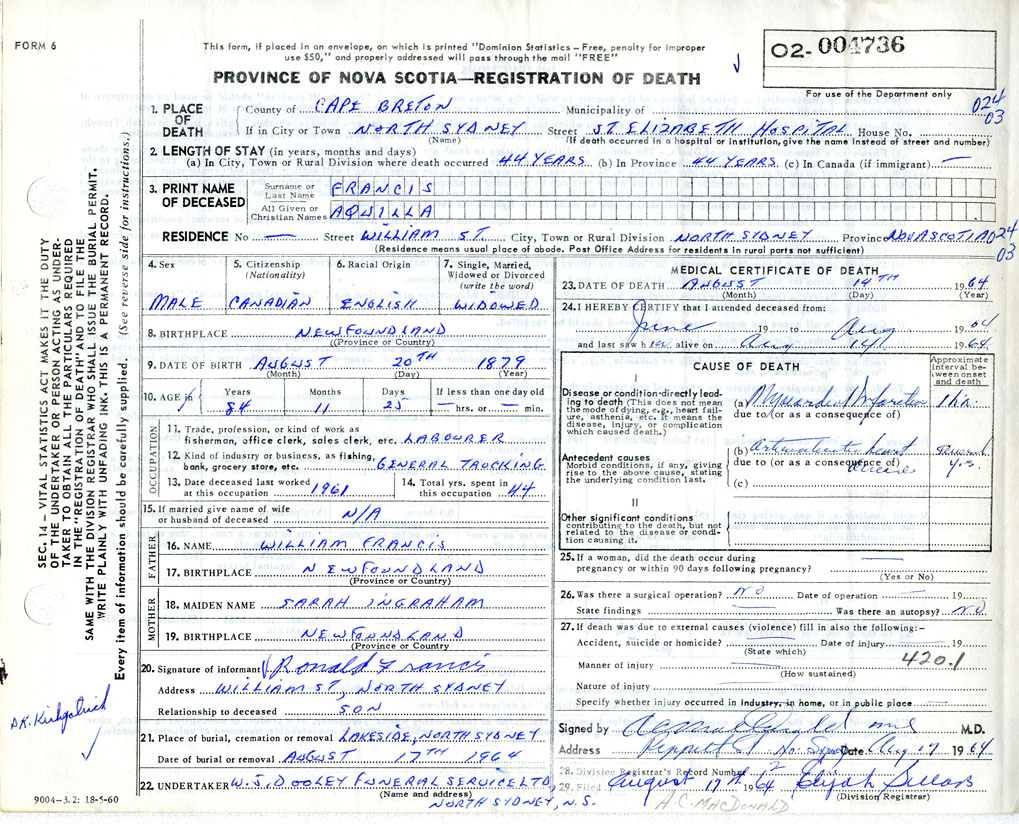 FORM 6
This form, if placed in an envelope, on which is printed "Dominion Statistics – Free, penalty for improper
use $50," and properly addressed will pass through the mail "FREE"
PROVINCE OF NOVA SCOTIA—REGISTRATION OF DEATH
02- 004736
For use of the Department only
024
03
1. PLACE OF DEATH
County of CAPE BRETON Municipality of
If in City or Town NORTH SYDNEY Street ST. ELIZABETH HOSPITAL House No.
(Name) (If death occurred in a hospital or institution, give the name instead of street and number)
2. LENGTH OF STAY (in years, months and days)
(a) In City, Town or Rural Division where death occurred 44 YEARS (b) In Province 44 YEARS (c) In Canada (if immigrant) —
3. PRINT NAME OF DECEASED
Surname or Last Name FRANCIS
All Given or Christian Names AQUILLA
RESIDENCE No — Street WILLIAM ST. City, Town or Rural Division NORTH SYDNEY Province NOVA SCOTIA 024
03
(Residence means usual place of abode. Post Office Address for residents in rural parts not sufficient)
4. Sex MALE
5. Citizenship (Nationality) CANADIAN
6. Racial Origin ENGLISH
7. Single, Married, Widowed or Divorced (write the word) WIDOWED
8. BIRTHPLACE NEWFOUNDLAND
(Province or Country)
9. DATE OF BIRTH AUGUST 20TH 1879
(Month) (Day) (Year)
10. AGE in Years 84 Months 11 Days 25 If less than one day old — hrs. or — min.
OCCUPATION
11. Trade, profession, or kind of work as
fisherman, office clerk, sales clerk, etc. LABOURER
12. Kind of industry or business, as fishing,
bank, grocery store, etc. GENERAL TRUCKING
13. Date deceased last worked at this occupation 1961
14. Total yrs. spent in this occupation 44
15. If married give name of wife
or husband of deceased N/A
FATHER
16. NAME WILLIAM FRANCIS
17. BIRTHPLACE NEWFOUNDLAND
(Province or Country)
MOTHER
18. MAIDEN NAME SARAH INGRAHAM
19. BIRTHPLACE NEWFOUNDLAND
(Province or Country)
20. Signature of informant Ronald Francis
Address WILLIAM ST, NORTH SYDNEY
Relationship to deceased SON
21. Place of burial, cremation or removal LAKESIDE, NORTH SYDNEY
Date of burial or removal AUGUST 17TH 1964
22. UNDERTAKER W. J. DOOLEY FUNERAL SERVICE LTD,
(Name and address)
NORTH SYDNEY, N.S.
MEDICAL CERTIFICATE OF DEATH
23. DATE OF DEATH AUGUST 14TH 1964
(Month) (Day) (Year)
24. I HEREBY CERTIFY that I attended deceased from:
June 19 to Aug 1964
and last saw him alive on Aug 14 1964
CAUSE OF DEATH
Approximate interval between onset and death
I
Disease or condition directly leading to death (This does not mean the mode of dying, e.g., heart failure, asthenia, etc. It means the disease, injury, or complication which caused death.)
(a) Myocardial Infarction 1 hr
due to (or as a consequence of)
Antecedent causes
Morbid conditions, if any, giving rise to the above cause, stating the underlying condition last.
(b) heart disease several yrs
due to (or as a consequence of)
(c)
II
Other significant conditions
contributing to the death, but not related to the disease or condition causing it.
25. If a woman, did the death occur during
pregnancy or within 90 days following pregnancy? —
(Yes or No)
26. Was there a surgical operation? NO Date of operation — 19
State findings — Was there an autopsy? NO
27. If death was due to external causes (violence) fill in also the following:–
Accident, suicide or homicide? — Date of injury — 19
(State which)
420.1
Manner of injury —
(How sustained)
Nature of injury —
Specify whether injury occurred in industry, in home, or in public place
Signed by M.D.
Address Peppett St No. Sydney Date Aug 17 1964
28. Division Registrar's Record Number 2
29. Filed August 17th 1964 Elijah
(Division Registrar)
A.C. MACDONALD
SEC. 14 – VITAL STATISTICS ACT MAKES IT THE DUTY
OF THE UNDERTAKER OR PERSON ACTING AS UNDER-
TAKER TO OBTAIN ALL THE PARTICULARS REQUIRED
IN THE "REGISTRATION OF DEATH" AND TO FILE THE
SAME WITH THE DIVISION REGISTRAR WHO SHALL ISSUE THE BURIAL PERMIT.
WRITE PLAINLY WITH UNFADING INK. THIS IS A PERMANENT RECORD.
Every item of information should be carefully supplied. (See reverse side for instructions.)
DR. Kirkpatrick
9004-3.2: 18-5-60